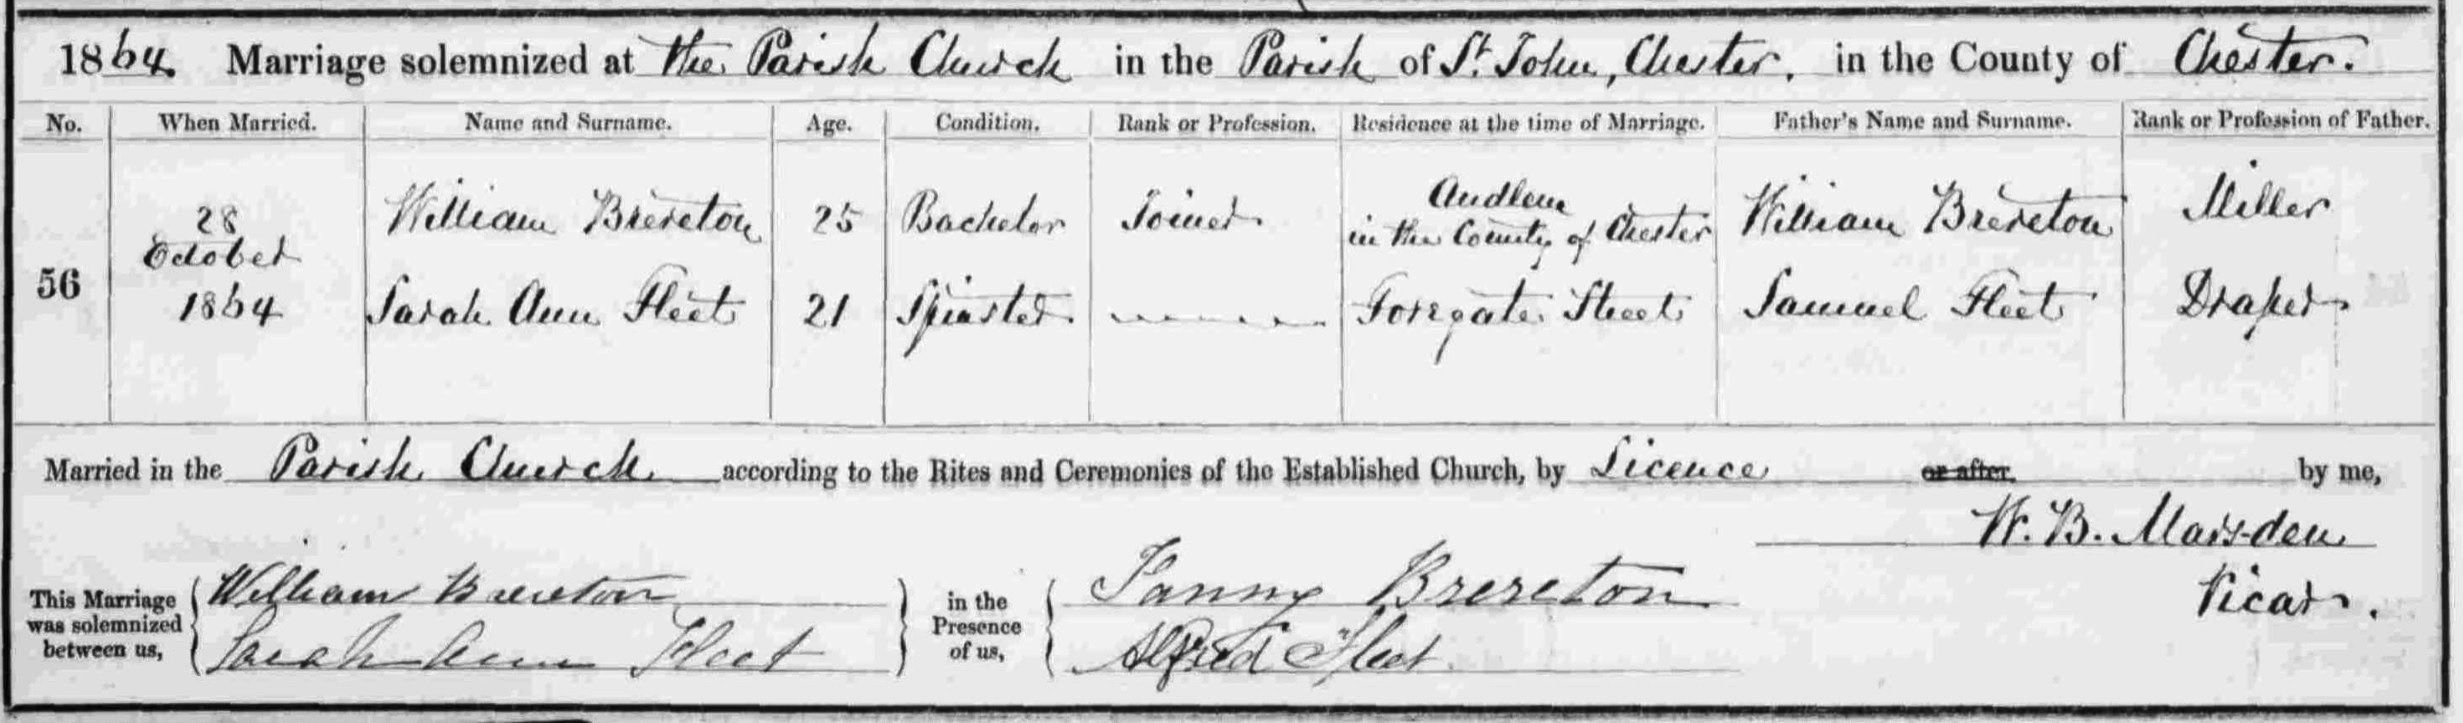 1864. Marriage solemnized at the Parish Church in the Parish of St. John, Chester. in the County of Chester.
No. When Married. Name and Surname. Age. Condition. Rank or Profession. Residence at the time of Marriage. Father's Name and Surname. Rank or Profession of Father.
56
28
October
1864
William Brereton 25 Bachelor Joiner Audlem
in the County of Chester William Brereton Miller
Sarah Ann Fleet 21 Spinster Foregate Street Samuel Fleet Draper
Married in the Parish Church according to the Rites and Ceremonies of the Established Church, by Licence or after by me,
W. B. Marsden
Vicar.
This Marriage
was solemnized
between us,
William Brereton
Sarah Ann Fleet
in the
Presence
of us,
Fanny Brereton
Alfred Fleet